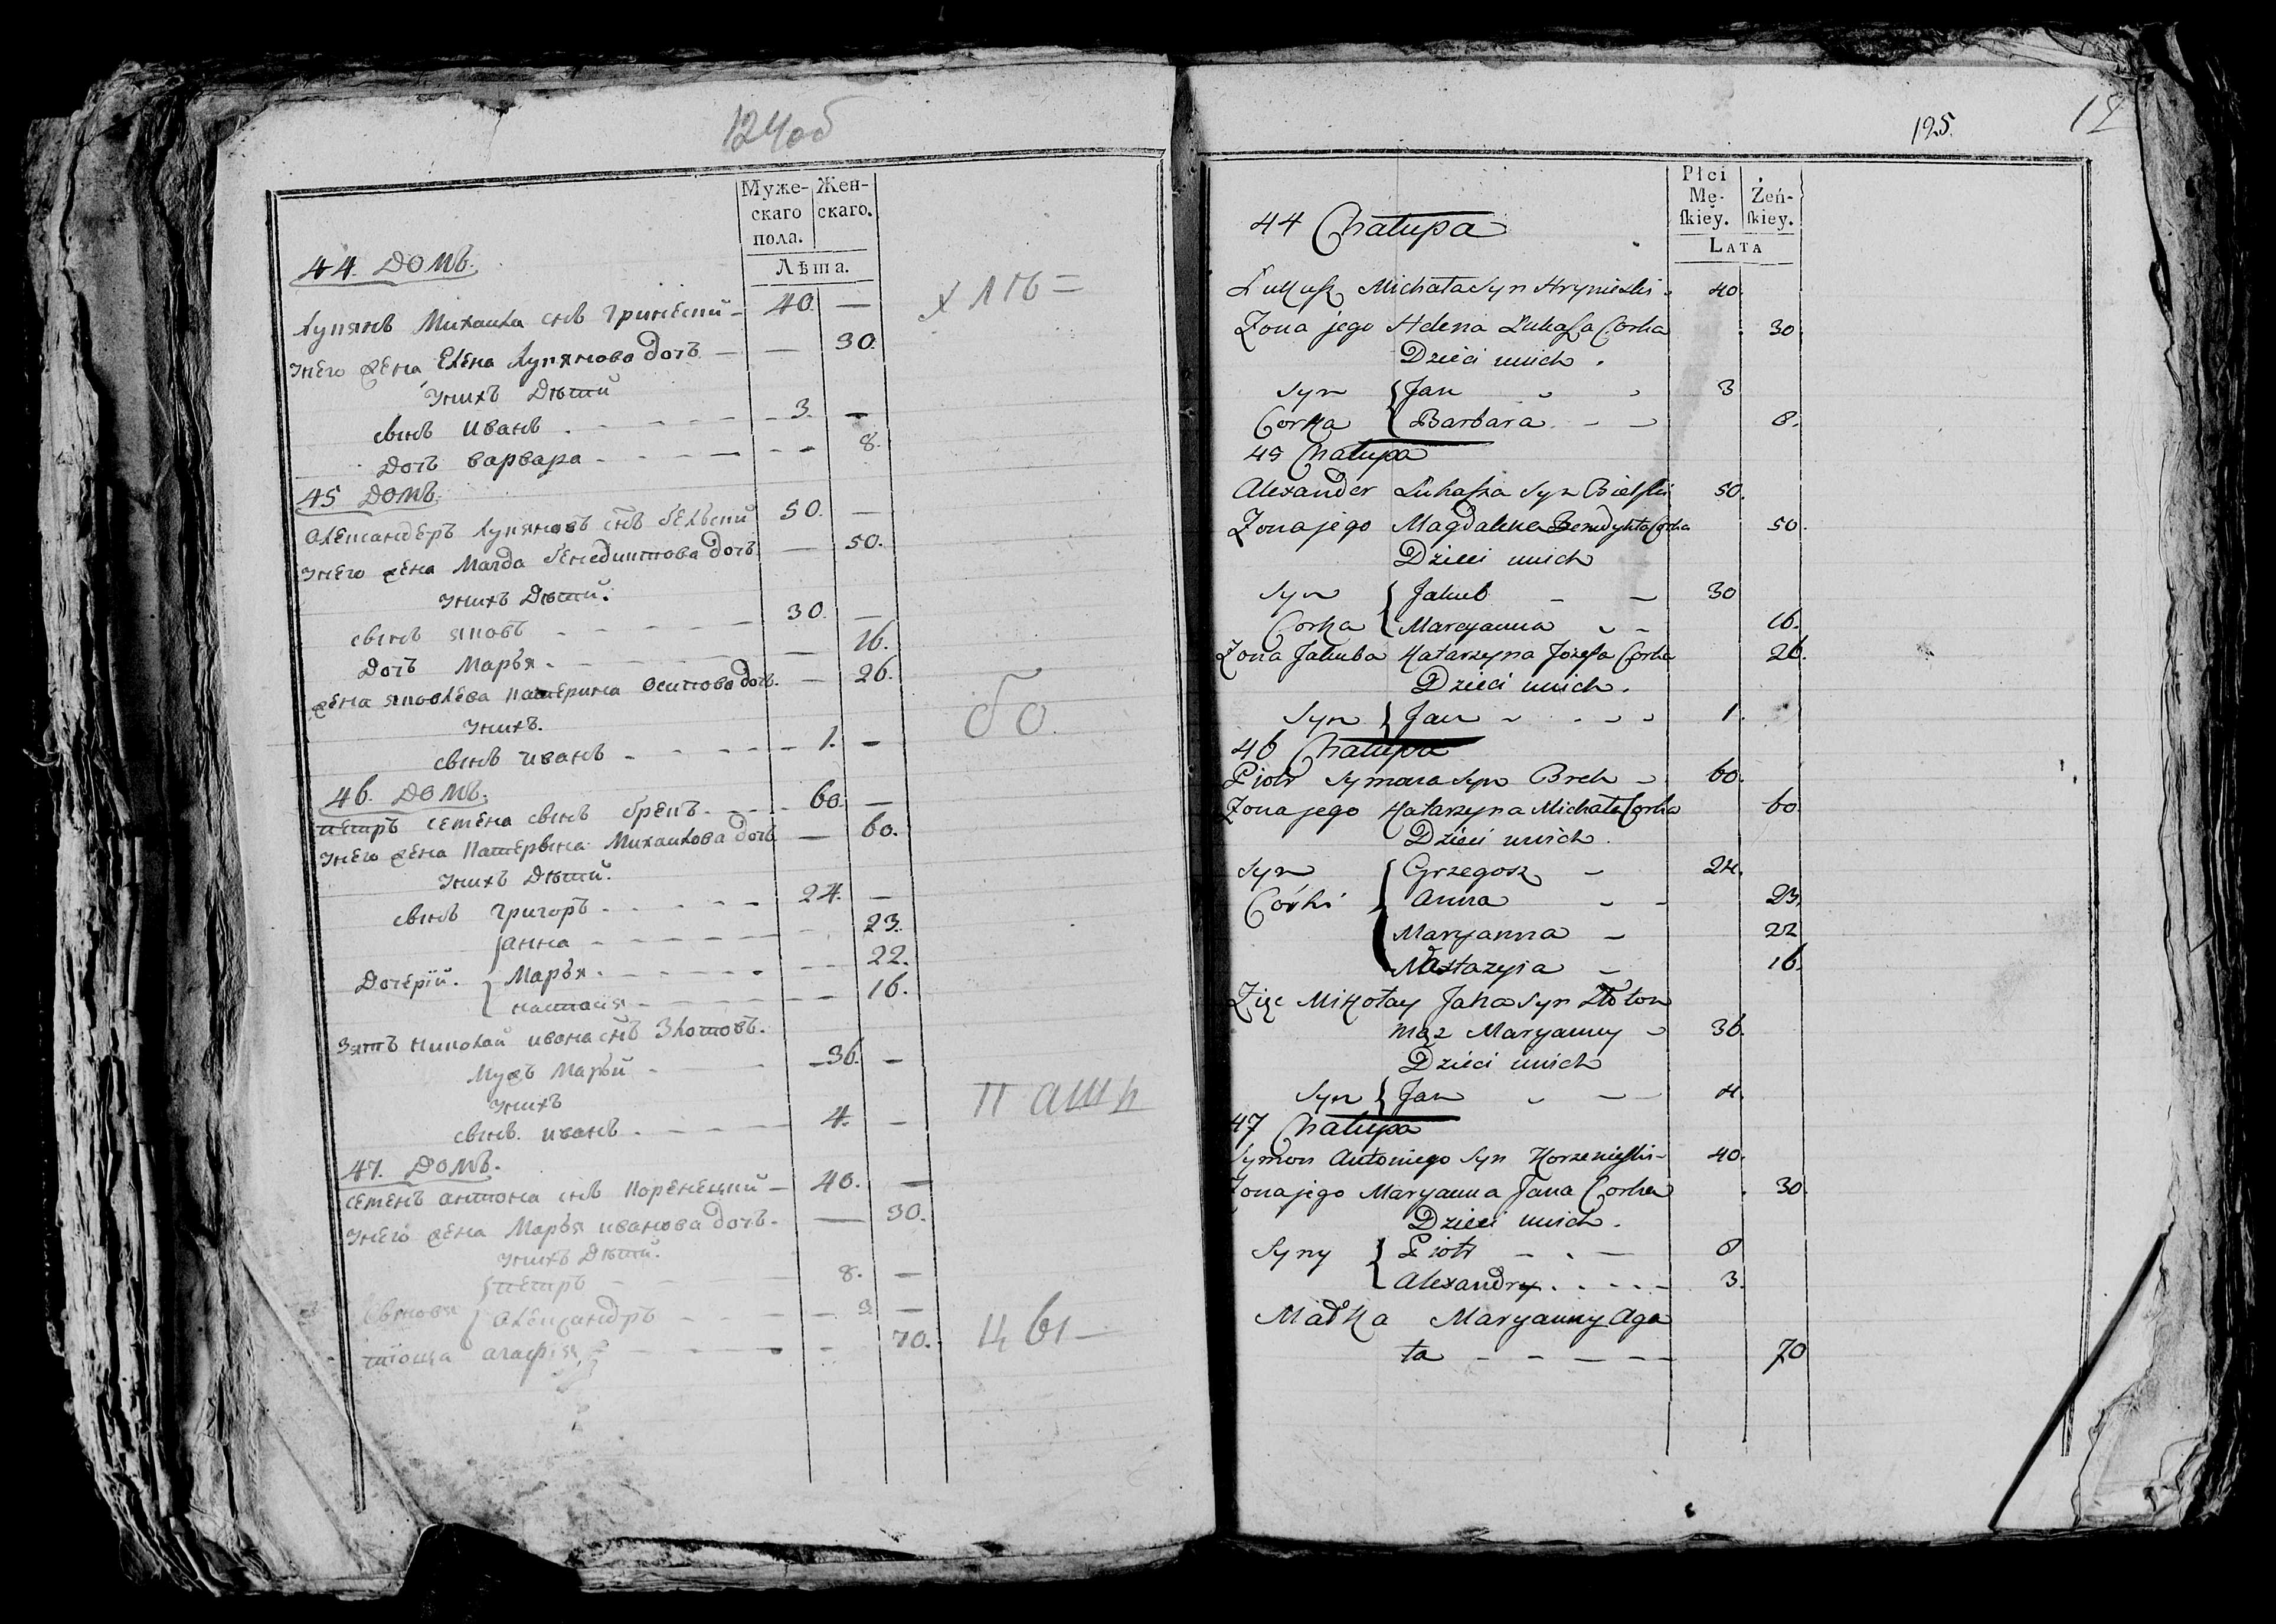 124об
Муже-
скаго
пола.
Жен-
скаго.
Лѣта.
44. Домъ.
Лукянъ Михаила снъ Гринескій — 40. —
унего жена Елена Лукянова дочь — — 30.
унихъ дѣтей
сынъ Иванъ . - - - - 3. —
дочь Варвара - - - - - - 8.
45 Домъ.
Олександеръ Лукяновъ снъ Белскій 50. —
унего жена Магда Бенедиктова дочь — 50.
унихъ дѣтей.
сынъ Яковъ - - - - - 30. —
дочь Марья - - - - — 16.
жена Яковлева Катерина Осипова дочь. — 26.
унихъ.
сынъ Иванъ - - - - - 1. —
46. Домъ.
Петръ Семена сынъ Брекъ. - - - 60. —
унего жена Катерына Михаилова дочь — 60.
унихъ дѣтей.
сынъ Григоръ - - - - - 24. —
Анна - - - - - - 23.
Дочерій. Марья. - - - - - - 22.
Настасія - - - - - 16.
Зять Николай Ивана снъ Злотовъ.
Мужъ Марьи - - - 36. —
унихъ
сынъ Иванъ - - - - 4. —
47. Домъ.
Семенъ Антона снъ Корженецкій — 40. —
унего жена Марья Иванова дочь. — 30.
унихъ дѣтей.
Петръ - - - 8. —
Сыновя Олександръ - - - - 3. —
тіоща Агафія - - - - - 70.
бо
пашк
цы —
125.
Płci
Mę-
skiey.
Żeń-
skiey.
Lata
44 Chałupa
Łukasz Michała Syn Hryniewski - 40.
Żona jego Helena Łukasza Corka 30.
Dzieci unich .
Syn Jan 3
Corka Barbara. - - 8.
45 Chałupa
Alexander Łukasza Syn Bielski 50.
Żona jego Magdalena Benedykta Corka 50.
Dzieci unich
Syn Jakub - - 30
Corka Maryanna - - 16.
Żona Jakuba Katarzyna Józefa Corka 26.
Dzieci unich.
Syn Jan - - - - 1.
46 Chałupa
Piotr Symona Syn Brek - 60.
Żona jego Katarzyna Michała Corka 60.
Dzieci unich.
Syn Grzegorz - 24.
Córki Anna - - 23.
Maryanna - 22
Nastazyia - 16.
Zięc Mikołay Jana Syn Złotow
mąz Maryanny - 36.
Dzieci unich
Syn Jan - - - 4.
47 Chałupa
Symon Antoniego Syn Korzeniewski - 40.
Żona jego Maryanna Jana Corka 30.
Dzieci unich.
Syny Piotr - . - 8
Alexandry. . - - - 3.
Matka Maryanny Aga
ta - - - - - 70